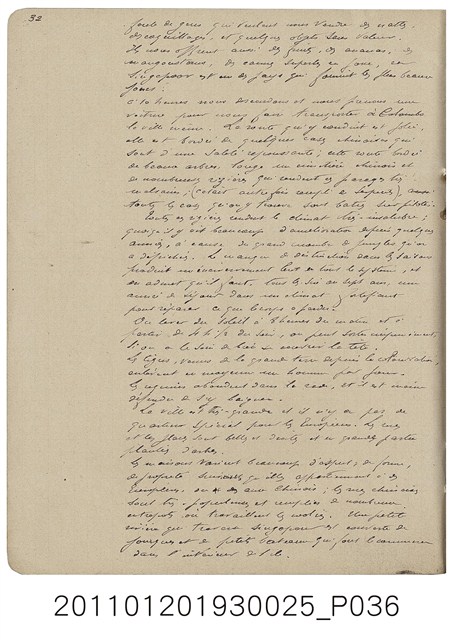 32
foule de gens qui veulent nous vendre des nattes,
des coquillages, et quelques objets sans valeur.
Ils nous offrent aussi des fruits, des ananas, des
mangoustans, des cannes superbes en jonc, car
Singapoor est un des pays qui fournit les plus beaux
joncs.
à 10 heures nous descendons et nous prenons une
voiture pour nous faire transporter à
la ville même. La route qui y conduit est jolie,
elle est bordée de quelques cases chinoises qui
sont d'une saleté repoussante; cette route bordée
de beaux arbres, longe un cimetière chinois et
de nombreuses rizières qui rendent ces parages très
malsains; (c'était autrefois rempli de
toutes les cases qu'on y trouve sont bâties sur pilotis.
Toutes ces rizières rendent le climat très-insalubre;
quoiqu'il y ait beaucoup d'amélioration depuis quelques
années, à cause du grand nombre de jungles qu'on
a défrichées. Le manque de distinction dans les saisons
produit un énervement lent de tout le système, et
on admet qu'il faut tous les six ou sept ans, une
année de séjour dans un climat
pour réparer ce que le corps a perdu.
Du lever du Soleil à 8 heures du matin et à
partir de 4 h ½ du soir, on peut sortir impunément,
si on a le soin de bien couvrir la tête.
Les tigres, venus de la grande terre depuis la
enlèvent en moyenne un homme par jour.
Les requins abondent dans la rade, et il est même
défendu de s'y baigner.
La ville est très-grande et il n'y a pas de
quartier spécial pour les Européens. Les rues
et les places sont belles et droites et en grande partie
plantées d'arbres.
Les maisons varient beaucoup d'aspect, de forme,
de propreté suivant qu'elles appartiennent à des
Européens, ou à des Chinois; les rues chinoises
sont très-populeuses et remplies de nombreux
entrepôts où travaillent les . Une petite
rivière qui traverse Singapour est couverte de
jonques et de petits bateaux qui font le commerce
dans l'intérieur de l'île.
201101201930025_P036